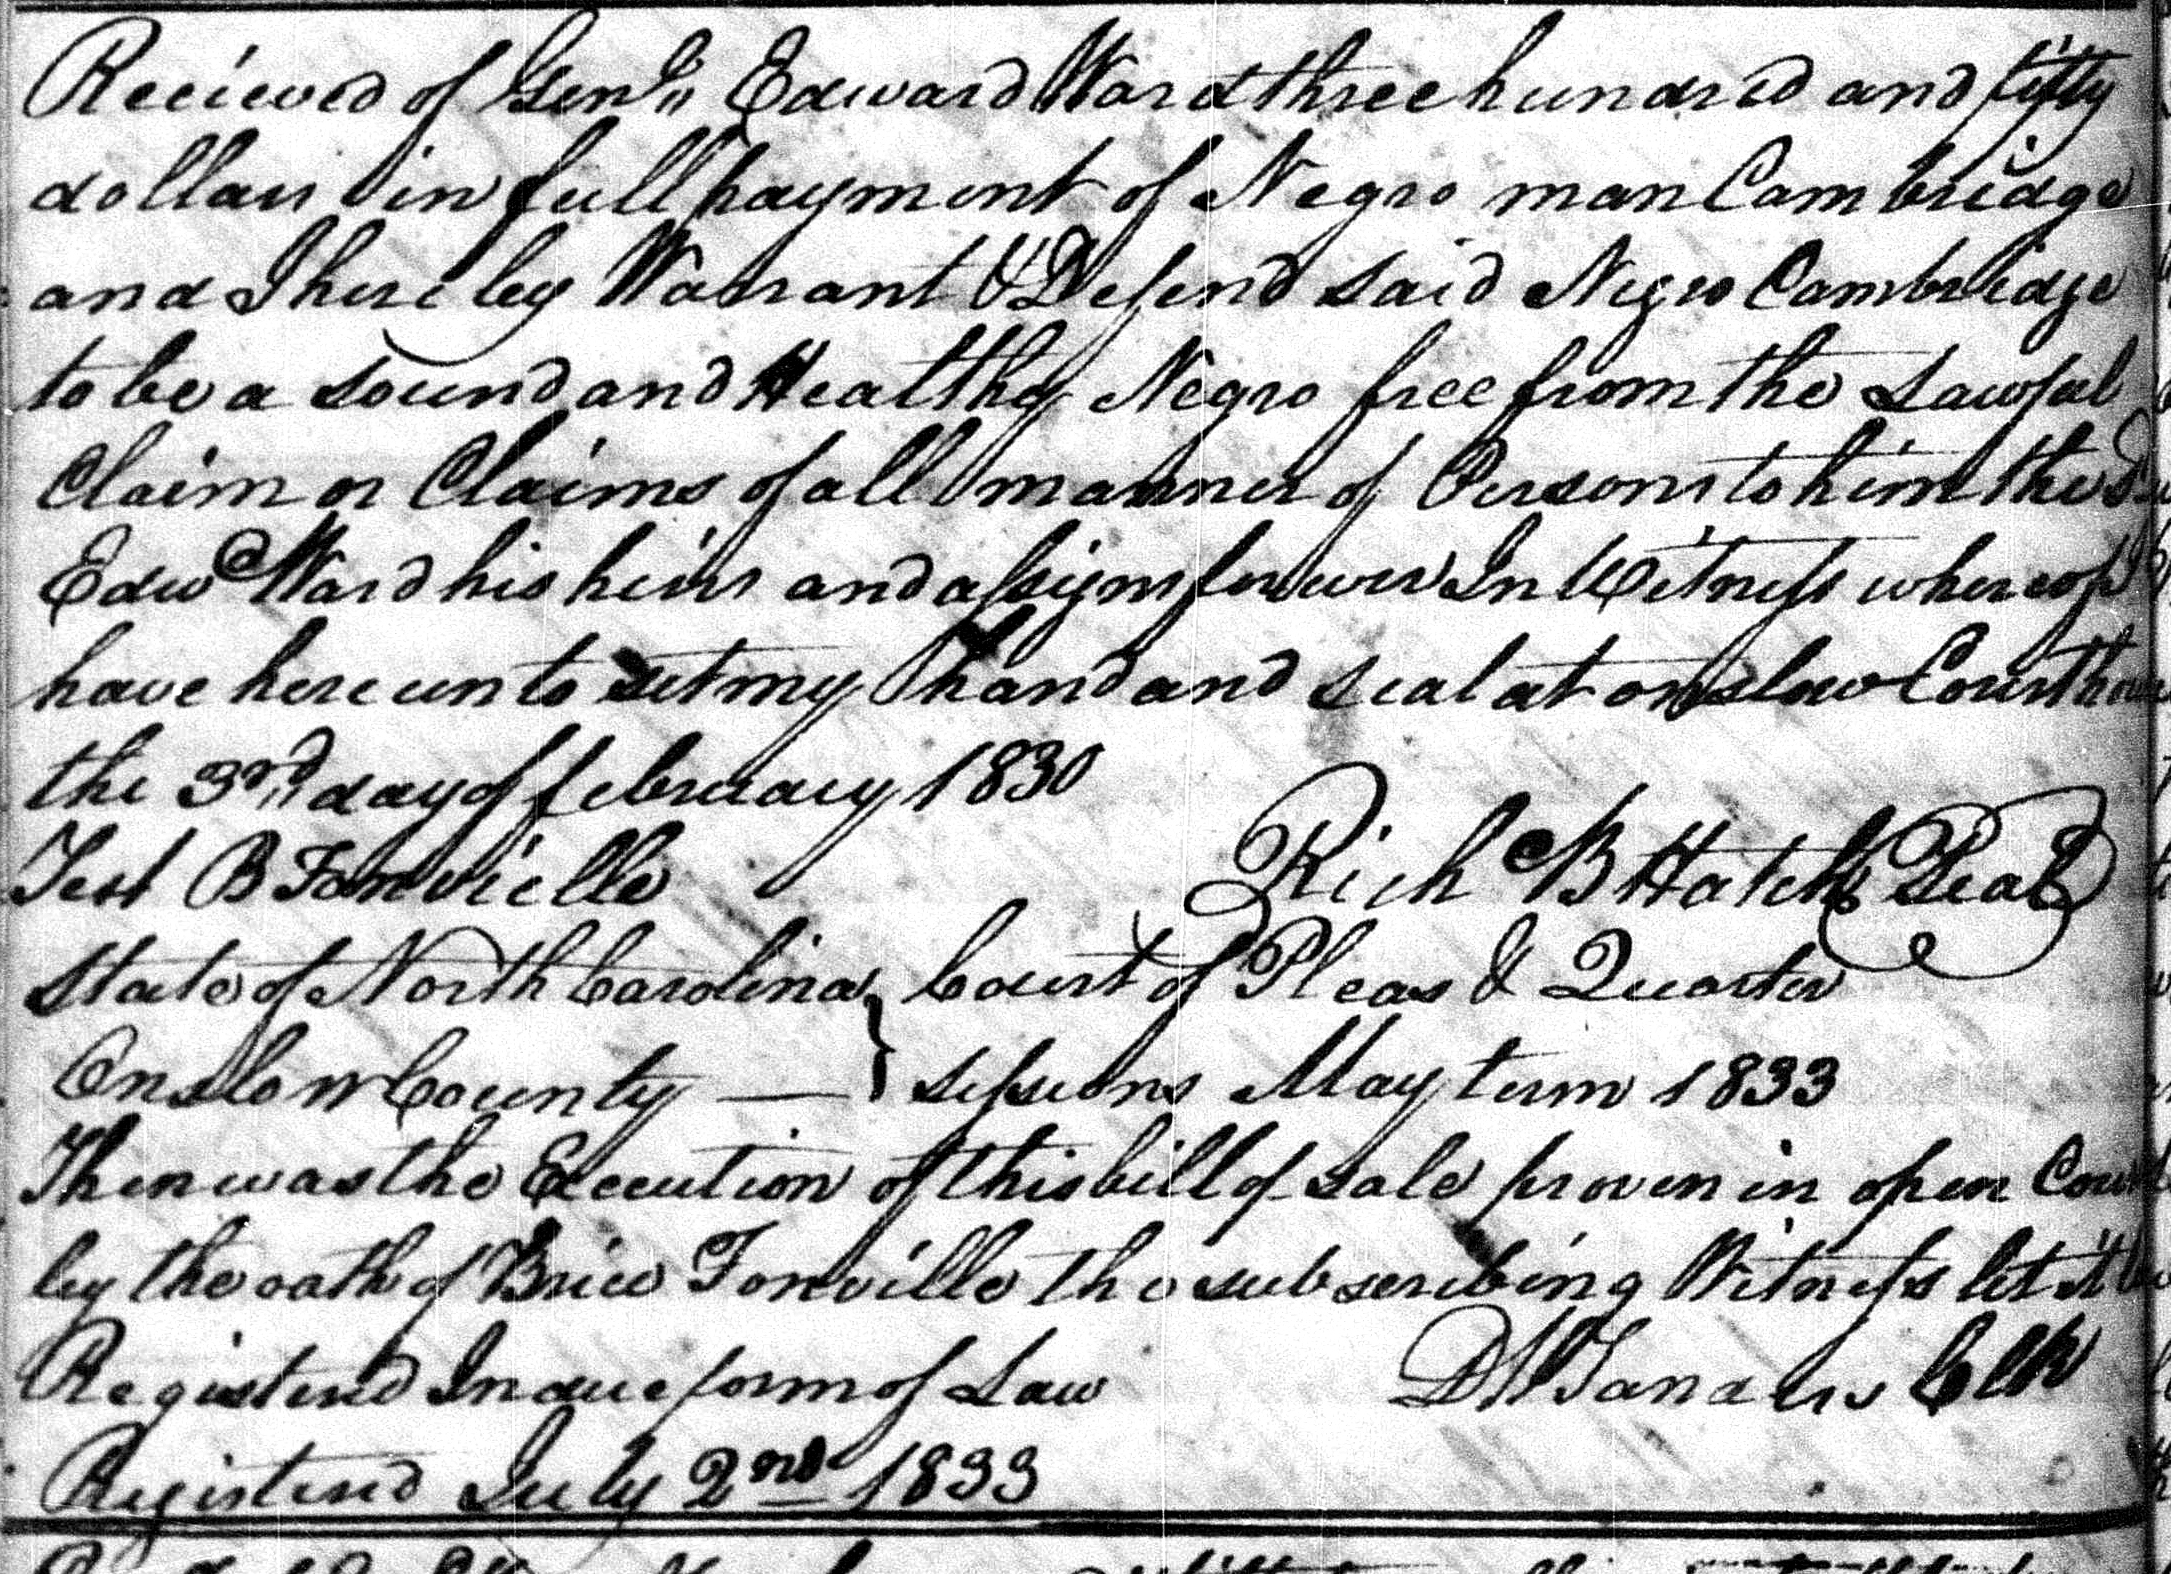 Recieved of Genl. Edward Ward three hundred and fifty
dollars in full payment of Negro man Cambridge
and I hereby Warrant & Defend said Negro Cambridge
to be a sound and Healthy Negro free from the Lawful
Claim or Claims of all manner of Persons to him the sd
Edwd Ward his heirs and assigns forever In Witness whereof I
have hereunto set my hand and seal at onslow Courthouse
the 3rd day of february 1830
Test B Fonvielle Rich B Hatch Seal
State of North Carolina Court of Pleas & Quarter
Onslow County — sessions May term 1833
Then was the Execution of this bill of sale proven in open Court
by the oath of Brice Fonville the subscribing Witness let it be
Registered In due form of Law Clk
Registered July 2nd 1833